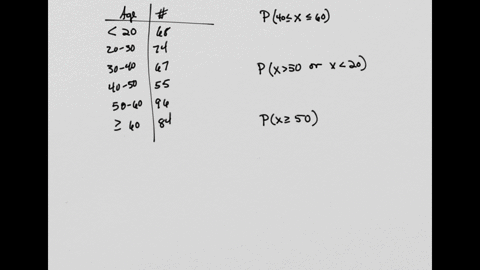 Age #
< 20 68
20-30 74
30-40 67
40-50 55
50-60 96
≥ 60 84
P(40≤ x ≤ 60)
P(x>50 or x<20)
P(x≥ 50)